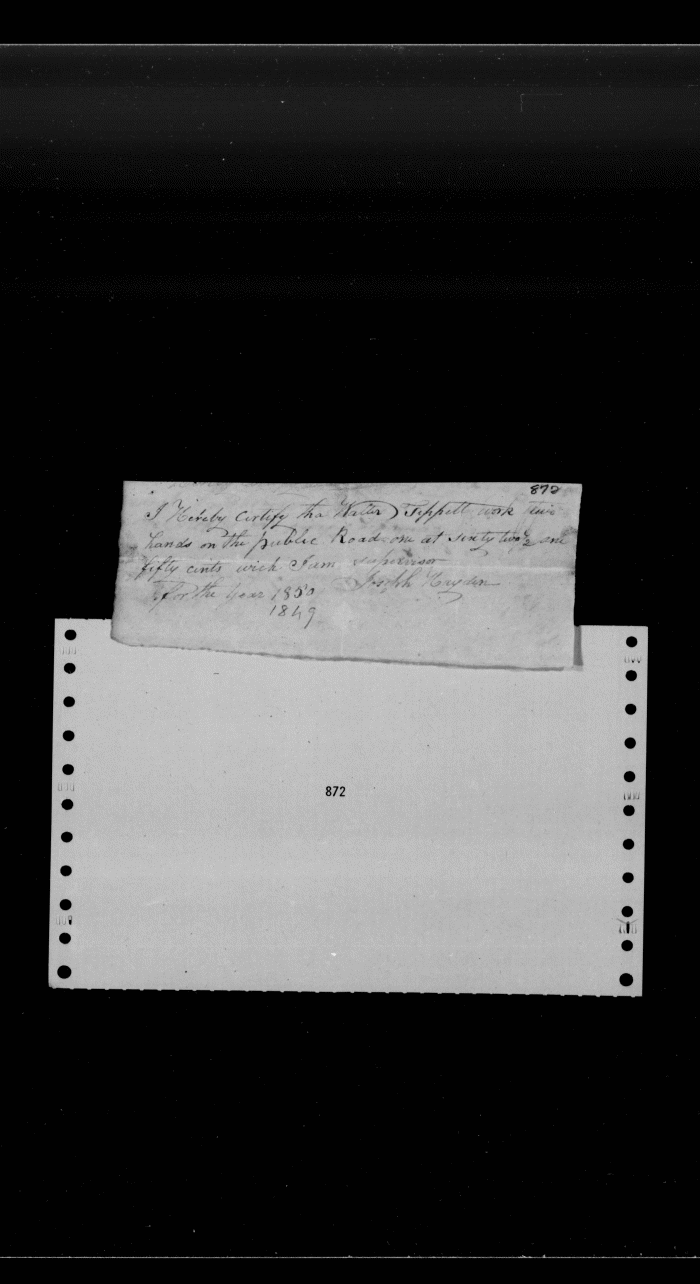 872
I Hereby Certify tha Walter Tippett work two
hands on the public Road one at sixty two ½ one
fifty cints wich I am supervisor
for the year 1850 Joseph
1849
872